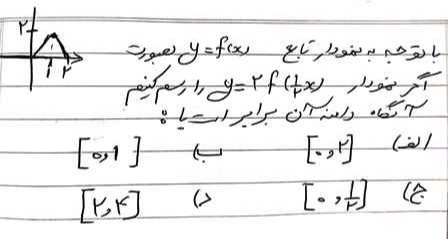 ۲
۱ ۲
با توجه به نمودار تابع y=f(x) بصورت
اگر نمودار y=۲f(½x) را رسم کنیم
آنگاه دامنه آن برابر است با :
الف) [۰,۲] ب) [۰,۱]
ج) [۰,½] د) [۲,۴]